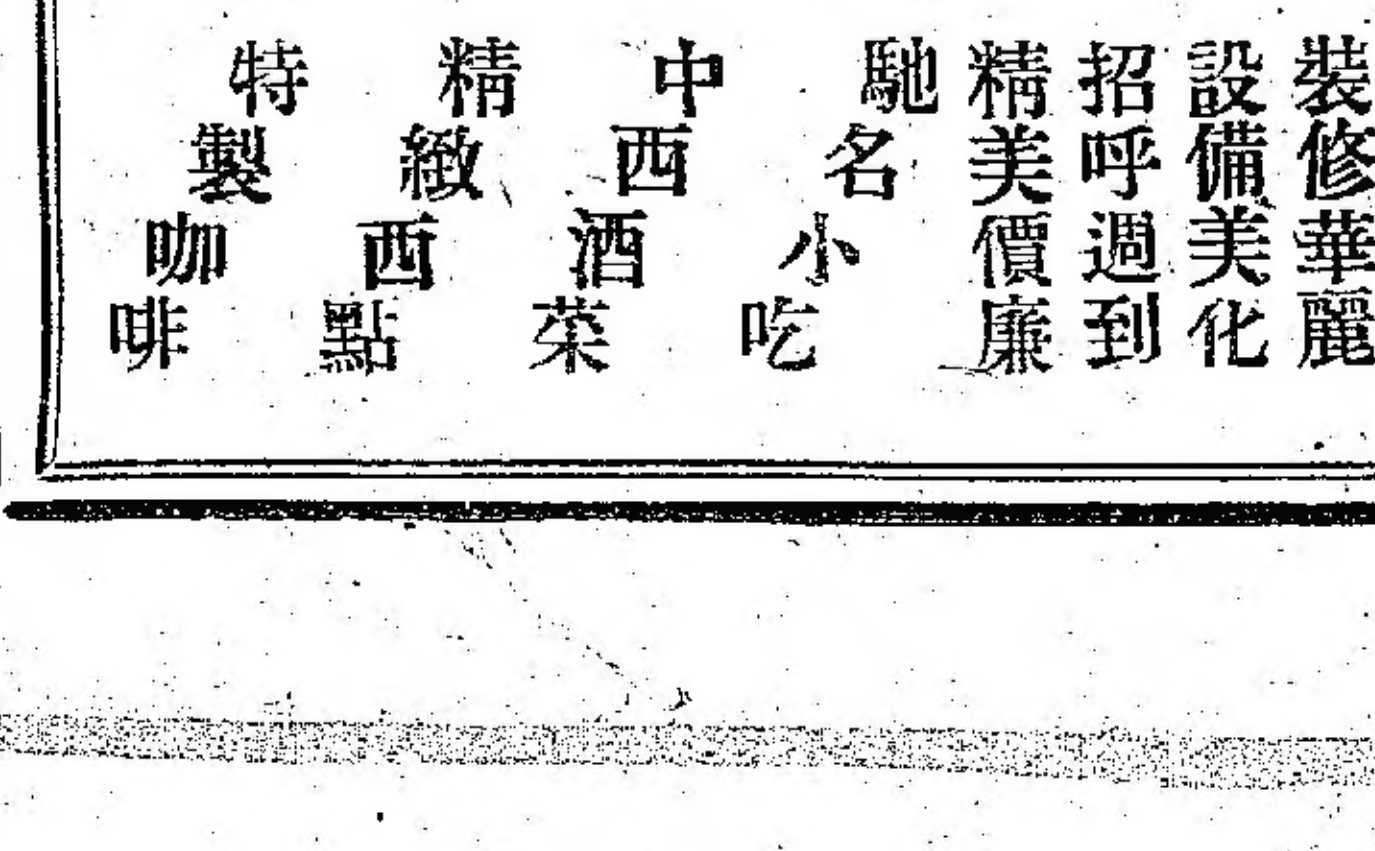 裝修華麗
設備美化
招呼週到
精美價廉
馳名小吃
中西酒菜
精緻西點
特製咖啡